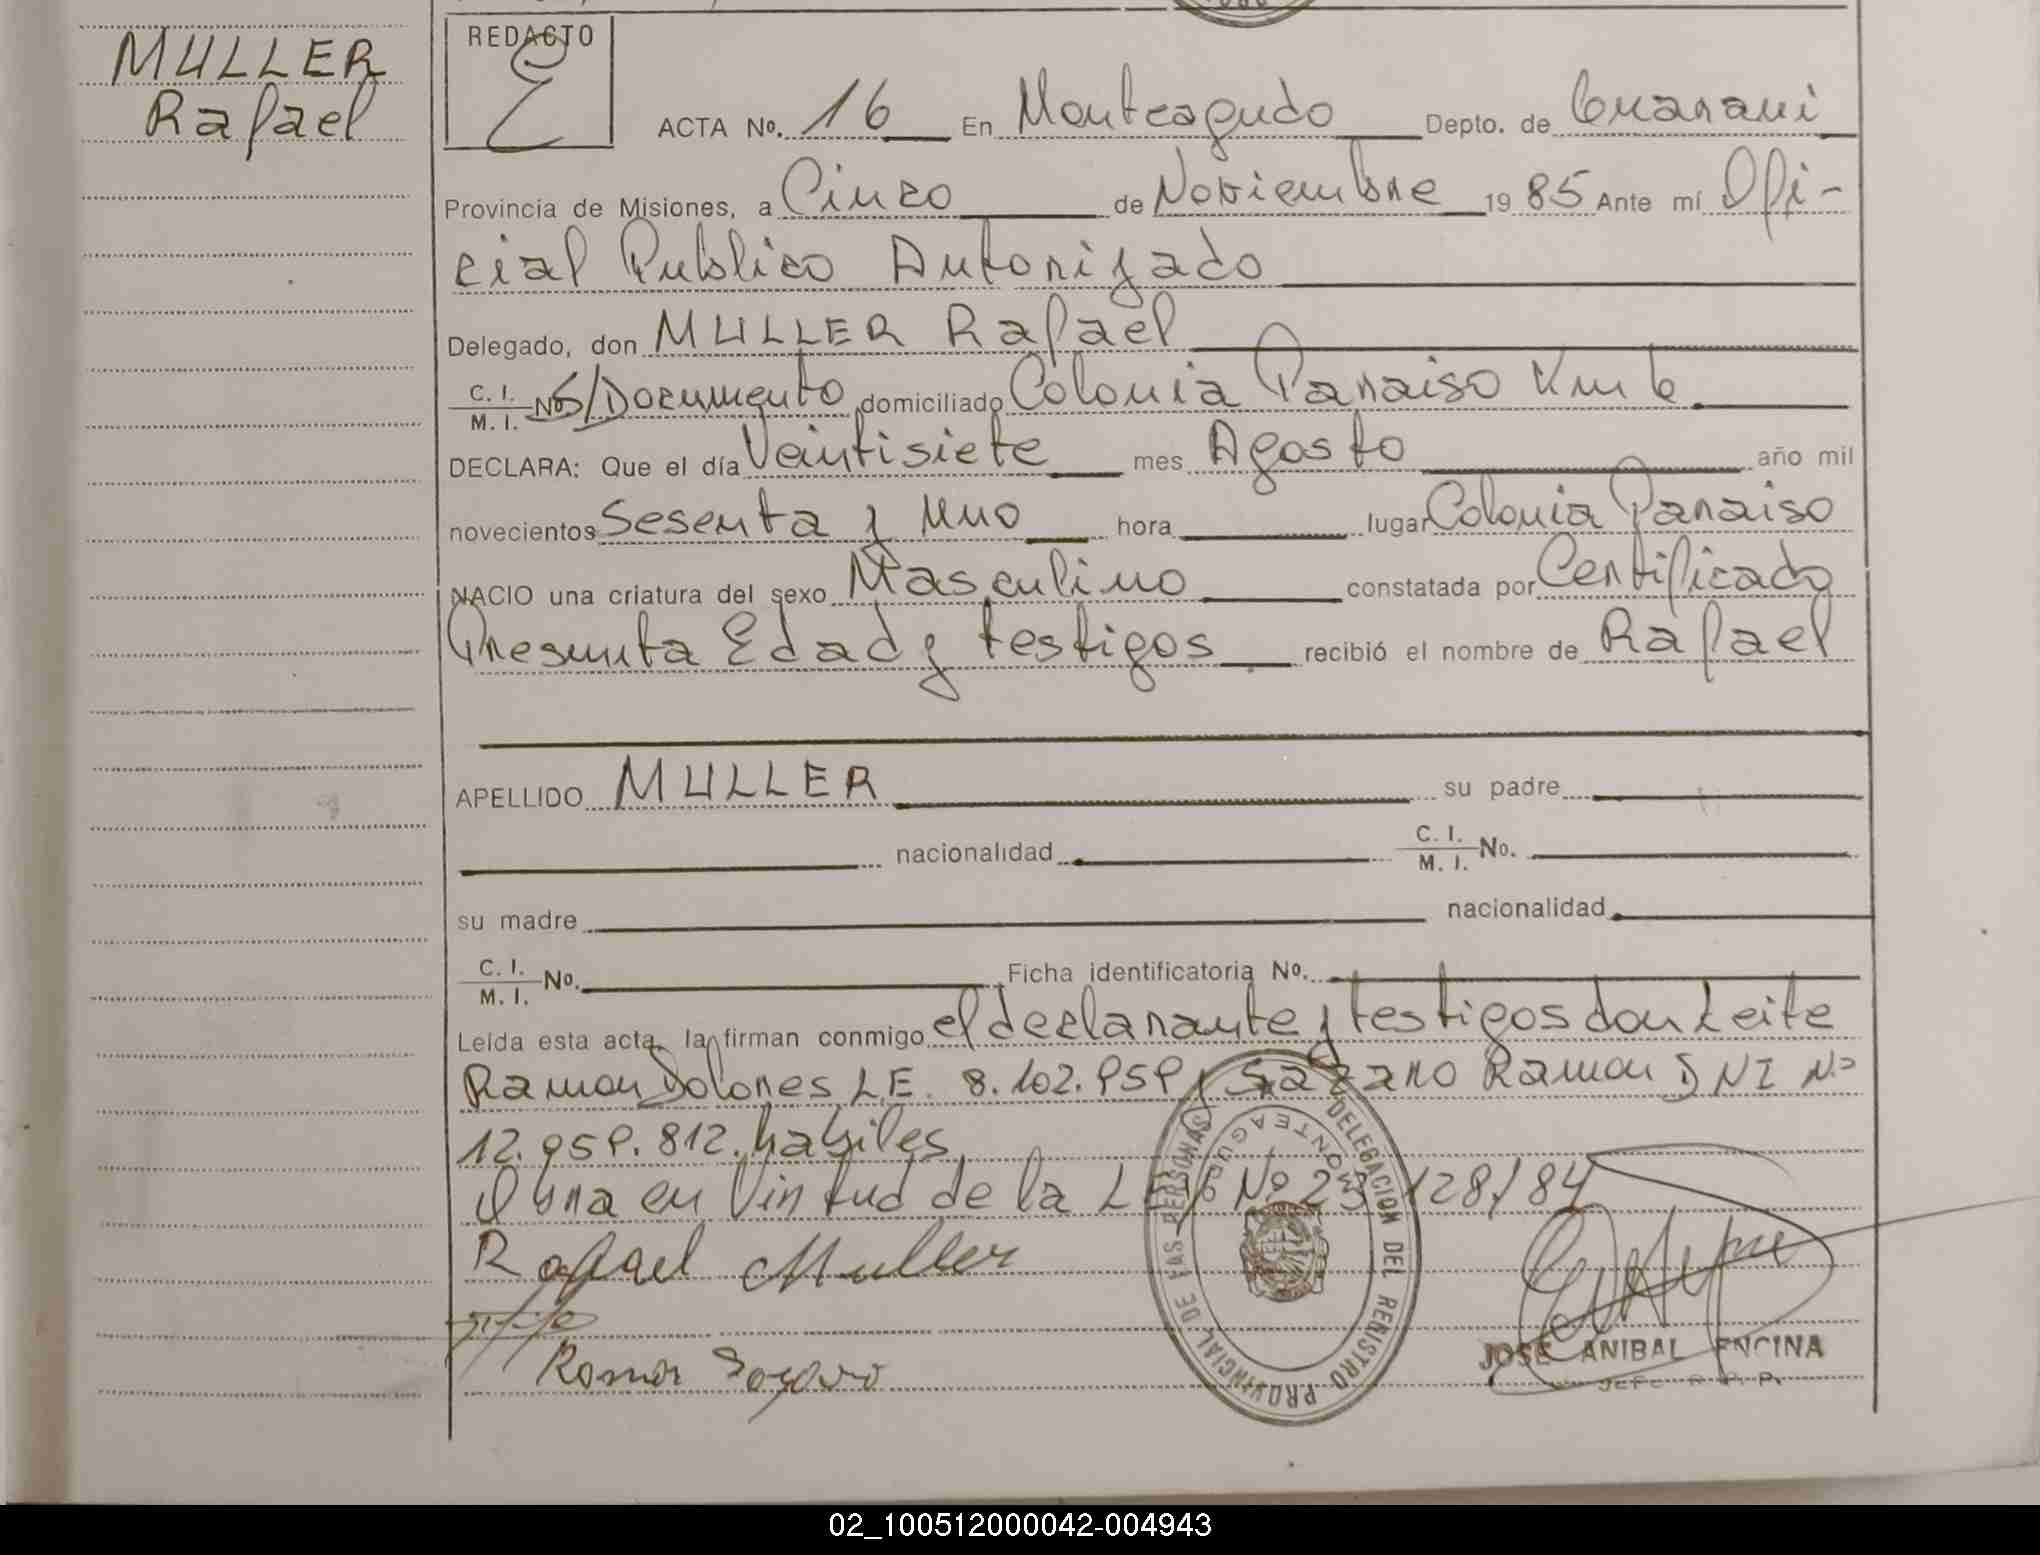 MULLER
Rafael
REDACTO
ACTA No. 16 En Monteagudo Depto. de Guarani
Provincia de Misiones, a Cinco de Noviembre 1985 Ante mí Ofi-
cial Publico Autorizado
Delegado, don MULLER Rafael
C. I. M. I. No S/Documento domiciliado Colonia Paraiso Km 6
DECLARA: Que el día Veintisiete mes Agosto año mil
novecientos Sesenta y Uno hora lugar Colonia Paraiso
NACIO una criatura del sexo Masculino constatada por Certificado
Presunta Edad y testigos recibió el nombre de Rafael
APELLIDO MULLER su padre
nacionalidad C. I. M. I. No.
su madre nacionalidad
C. I. M. I. No. Ficha identificatoria No.
Leída esta acta, la firman conmigo el declarante y testigos don Leite
Ramon Dolores L.E. 8.102.959 y Sazano Ramon DNI No
12.959.812. habiles
Obra en Virtud de la LEY No 23.128/84
Rafael Muller
Ramon
DELEGACION DEL REGISTRO PROVINCIAL DE LAS PERSONAS
MONTEAGUDO
JOSE ANIBAL ENCINA
JEFE R. P. P.
02_100512000042-004943